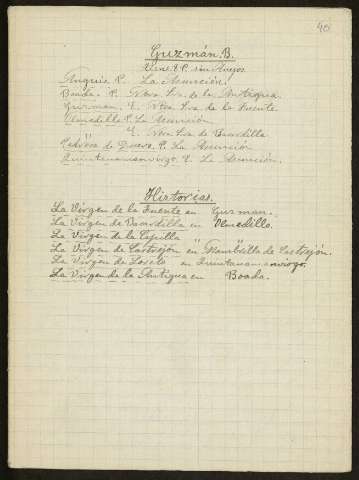 40
Guzmán. B.
Tiene 7 P. sin Anejos
Anguix P. La Asunción.
Boada. P. Ntra. Sra. de la Antigua
Guzman. E. Ntra Sra de la Fuente
Olmedillo P. La Asunción
E. Ntra Sra de Basardilla
Pedrosa de Duero. P. La Asunción
Quintanamanvirgo. P. La Asunción.
Historias.
La Virgen de la Fuente en Guzman.
La Virgen de Basardilla en Olmedillo.
La Virgen de la Capilla " "
La Virgen de Castrejón en Nambrilla de Castrejón.
La Virgen de Loreto en Quintanamanvirgo.
La Virgen de la Antigua en Boada.